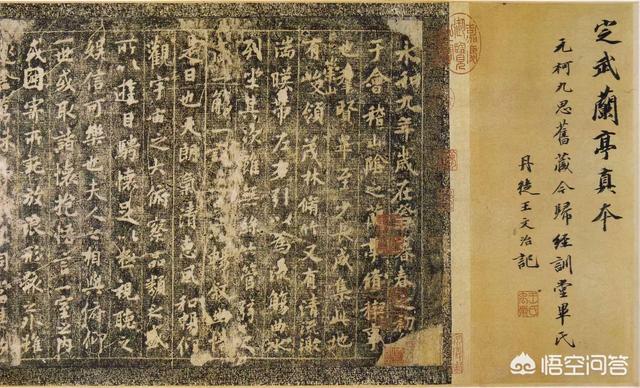 定武蘭亭真本
元柯九思舊藏今歸經訓堂畢氏
丹徒王文治記
永和九年歲在癸暮春之初
于會稽山陰之蘭亭脩禊事
也羣賢畢至少長咸集此地
有崇山峻領茂林脩竹又有清流激
湍暎帶左右引以為流觴曲水
列坐其次雖無絲竹管弦
觴一詠亦足以暢敘幽情
是日也天朗氣清惠風和暢仰
觀宇宙之大俯察品類之盛
所以遊目騁懷足以極視聽之
娛信可樂也夫人之相與俯仰
一世或取諸懷抱悟言一室之內
或因寄所託放浪形骸之外雖
悟空问答